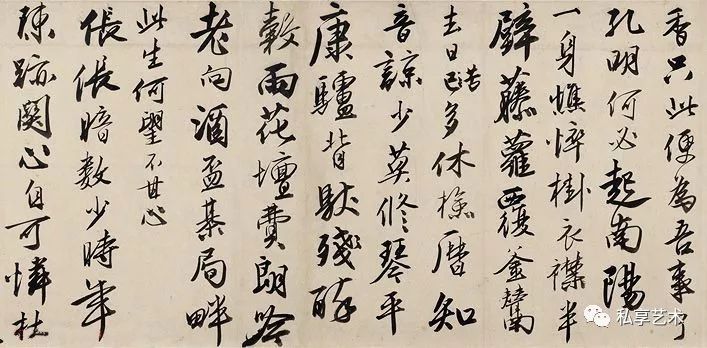 香只此便為吾事了
孔明何必起南陽
一身憔悴掛衣襟半
壁藤蘿覆釜鬵
去日已苦多休檢曆知
音諒少莫修琴平
康驢背馱殘醉
穀雨花壇費朗吟
老向酒盃棊局畔
此生何望不甘心
倀倀暗數少時年
陳跡関心自可憐杜
私享艺术